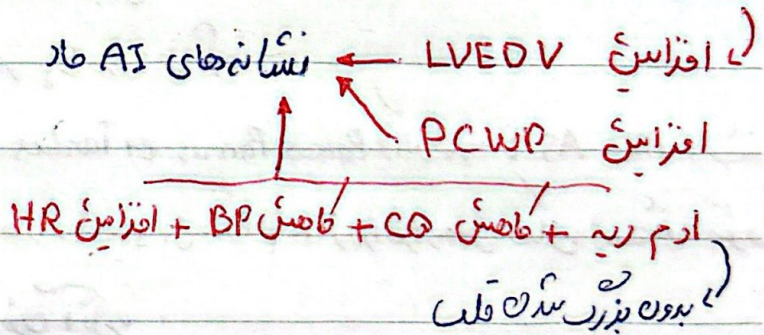 افزایش LVEDV ← نشانه‌های AI حاد
افزایش PCWP
ادم ریه + کاهش CO + کاهش BP + افزایش HR
بدون بزرگ شدن قلب